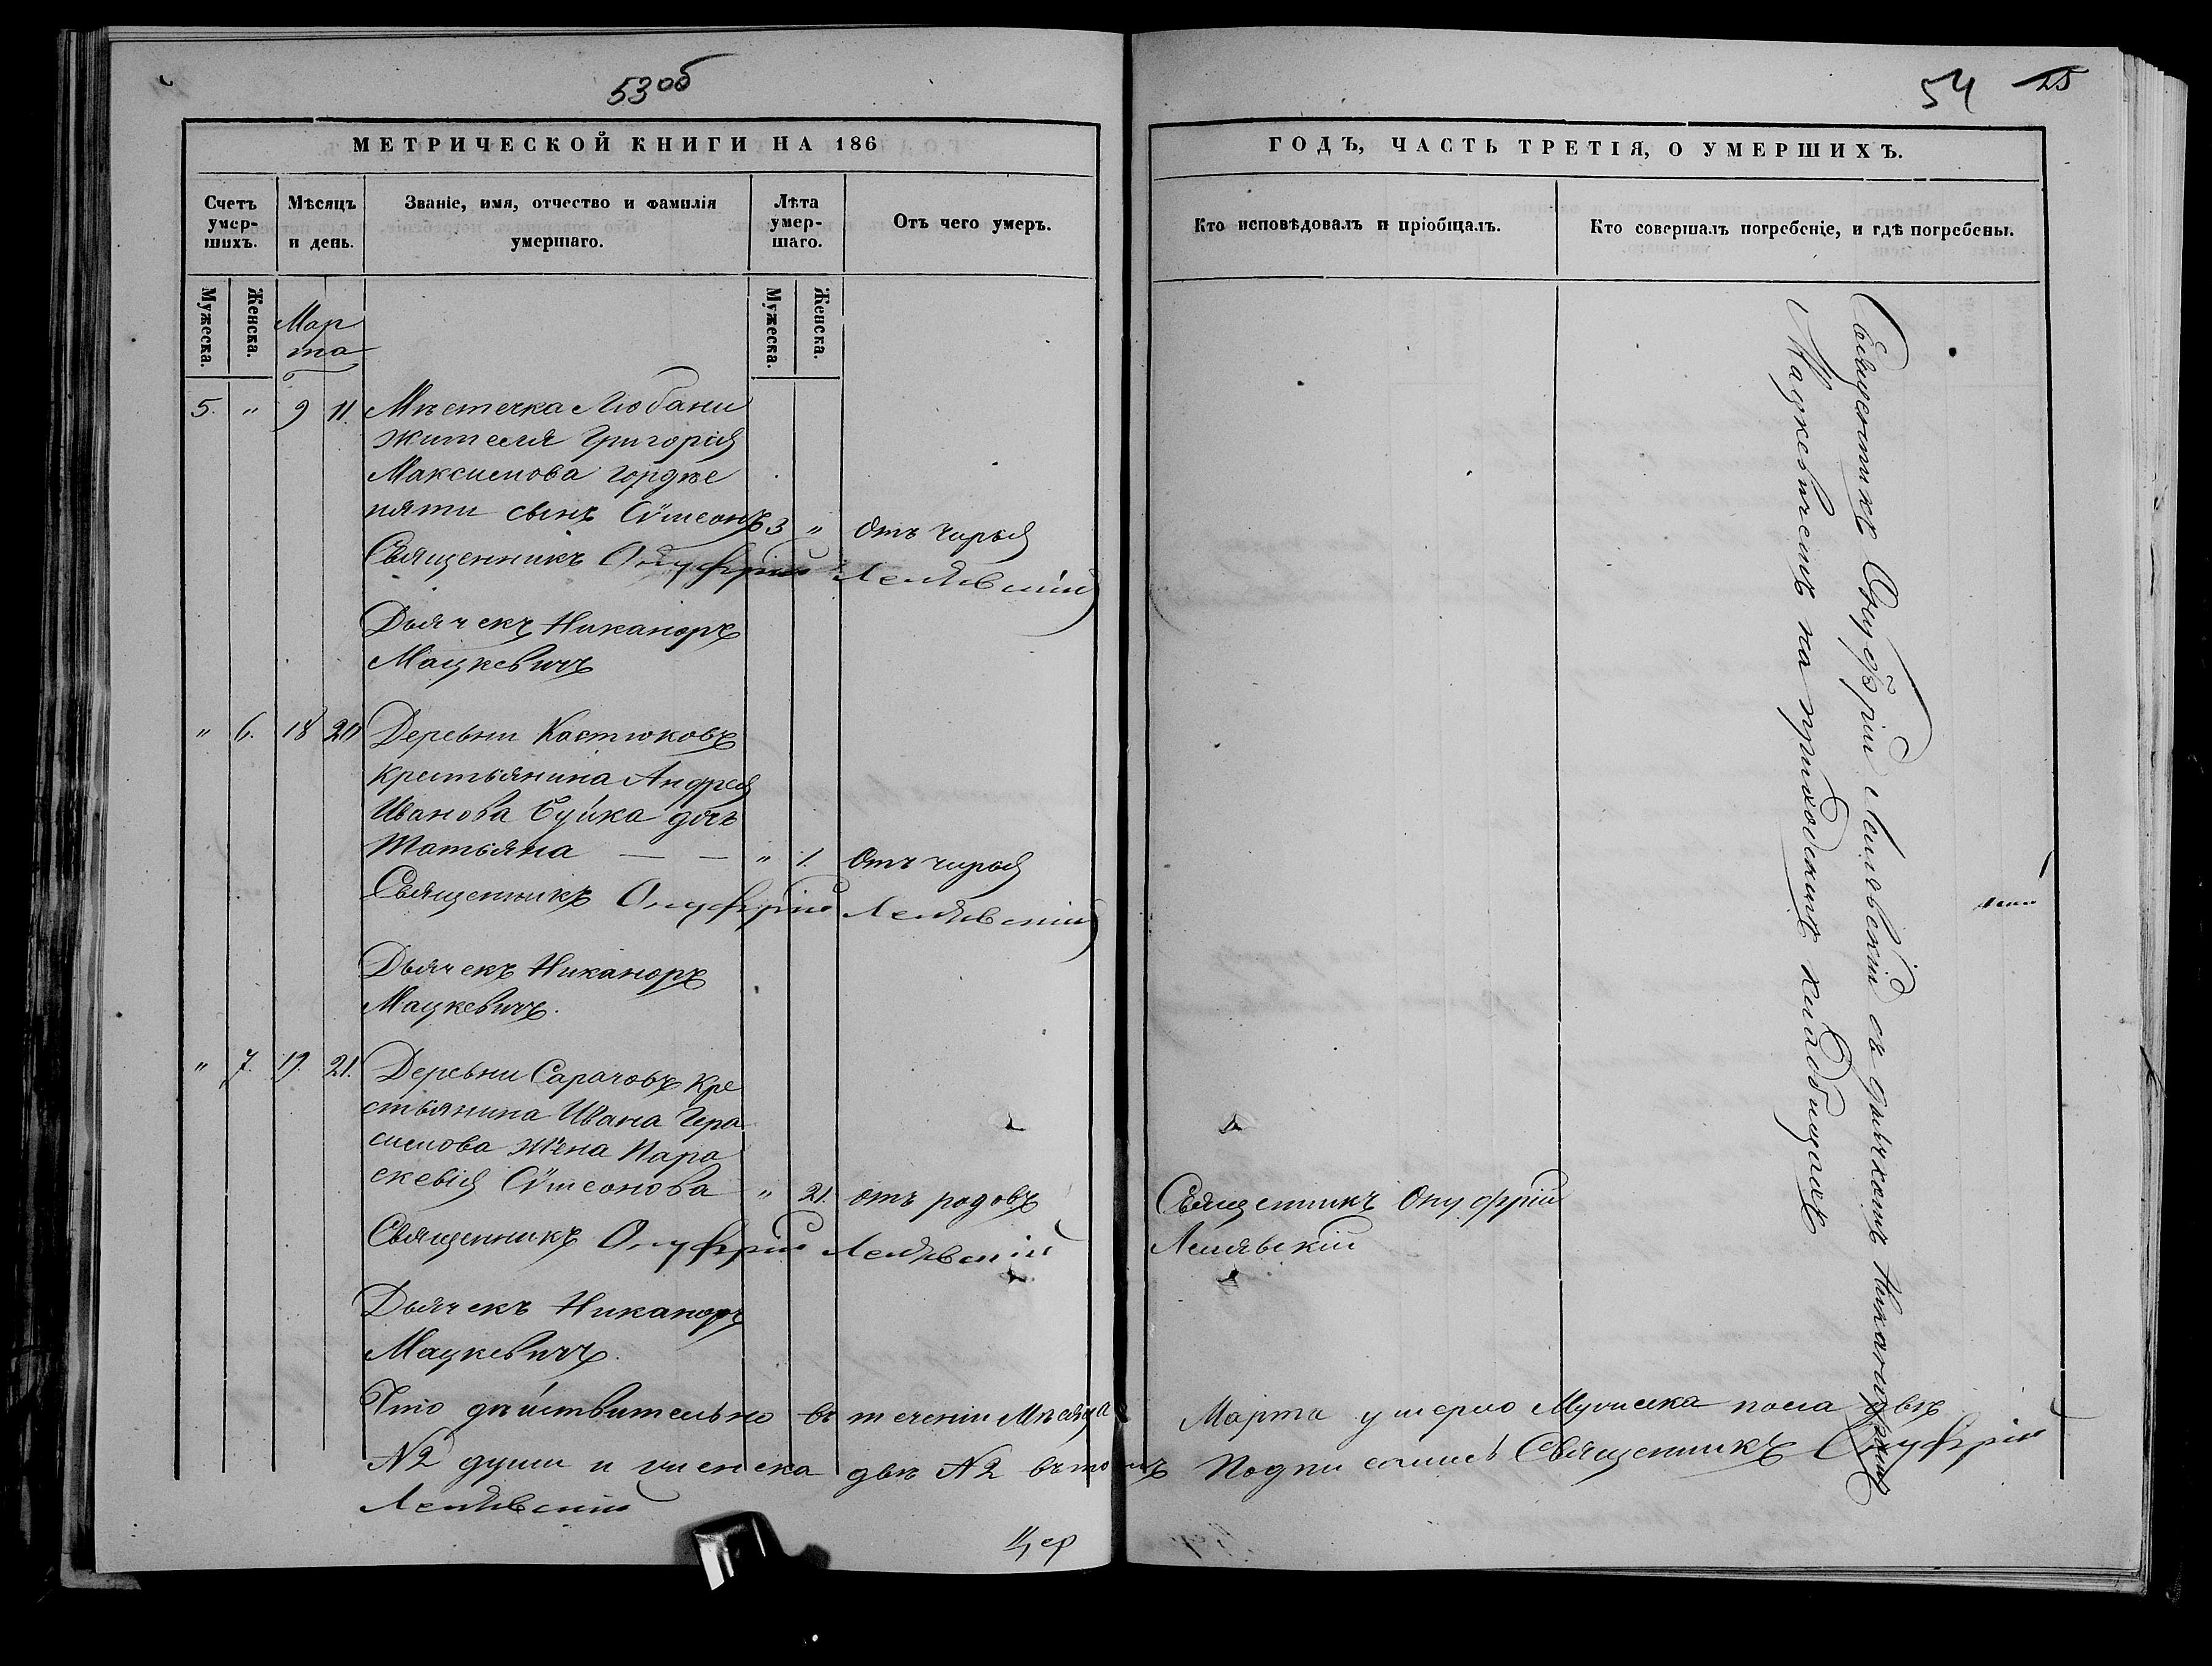 53об
МЕТРИЧЕСКОЙ КНИГИ НА 186
Счетъ умер-шихъ.
Мѣсяцъ и день.
Званіе, имя, отчество и фамилія умершаго.
Лѣта умер-шаго.
Отъ чего умеръ.
Мужеска.
Женска.
Мужеска.
Женска.
Мар
та
5. " 9 11. Мѣстечка Любани
жителя Григорія
Максимова Гордѣе
няти сынъ Сѵмеонъ 3 " Отъ чирья
Священникъ Онуфрій Лелявскій
Дьячекъ Никаноръ
Мацкевичъ
" 6. 18 20 Деревни Костюковъ
крестьянина Андрея
Иванова Буйка дочь
Татьяна — — " 1. Отъ чирья
Священникъ Онуфрій Лелявскій
Дьячекъ Никаноръ
Мацкевичъ.
" 7. 19. 21. Деревни Сарачовъ кре
стьянина Ивана Гера
симова жена Пара
скевія Сѵмеонова " 21. отъ родовъ
Священникъ Онуфрій Лелявскій
Дьячекъ Никаноръ
Мацкевичъ.
Что дѣйствительно въ теченіи Мѣсяца
№2 души и женска двѣ №2 въ томъ
Лелявскій
Цер
54 25
ГОДЪ, ЧАСТЬ ТРЕТІЯ, О УМЕРШИХЪ.
Кто исповѣдовалъ и пріобщалъ.
Кто совершалъ погребеніе, и гдѣ погребены.
Священникъ Онуфрій
Лелявскій
Священникъ Онуфрій Лелявскій съ дьячкомъ Никаноромъ
Мацкевичемъ на приходскимъ кладбищахъ
Марта умерло Мужеска пола двѣ
Подписались Священникъ Онуфрій